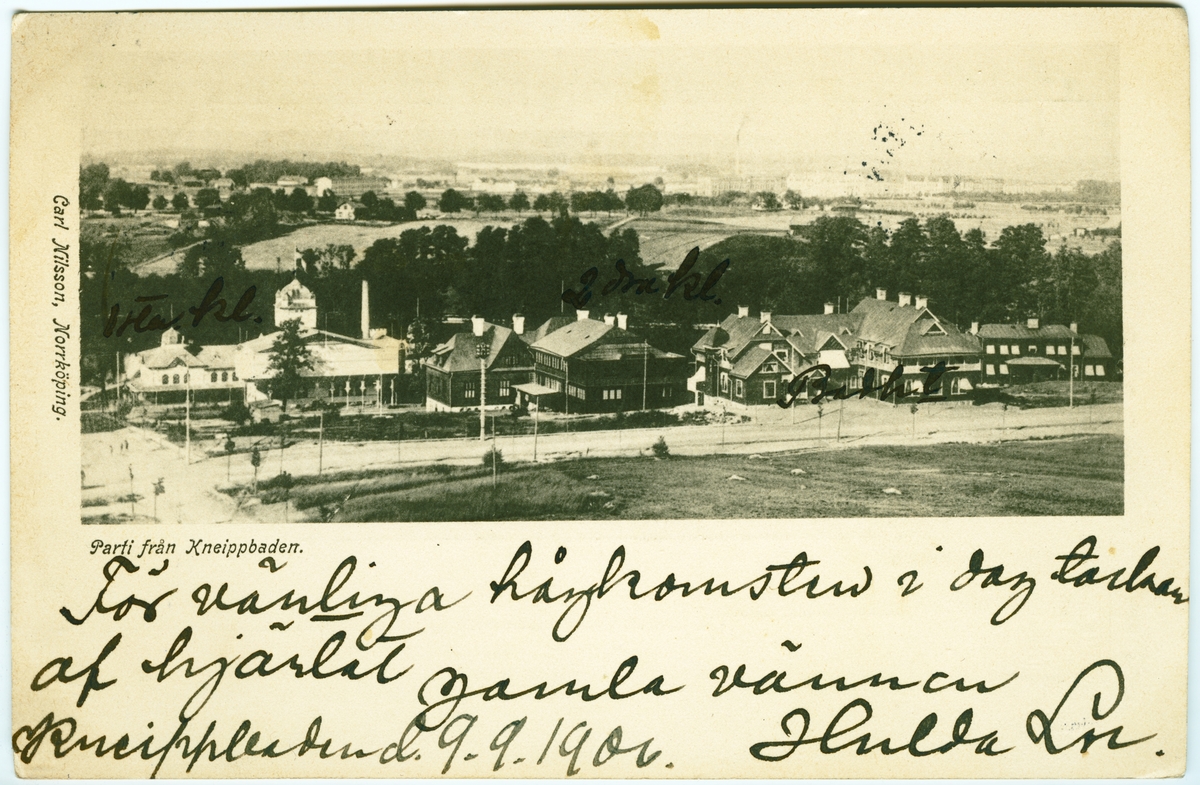 Carl Nilsson, Norrköping.
1sta kl.
2dra kl.
Badhut
Parti från Kneippbaden.
För vänliga hågkomsten i dag tackar
af hjärtat gamla vännen
Kneippbaden d. 9.9.1906. Hulda